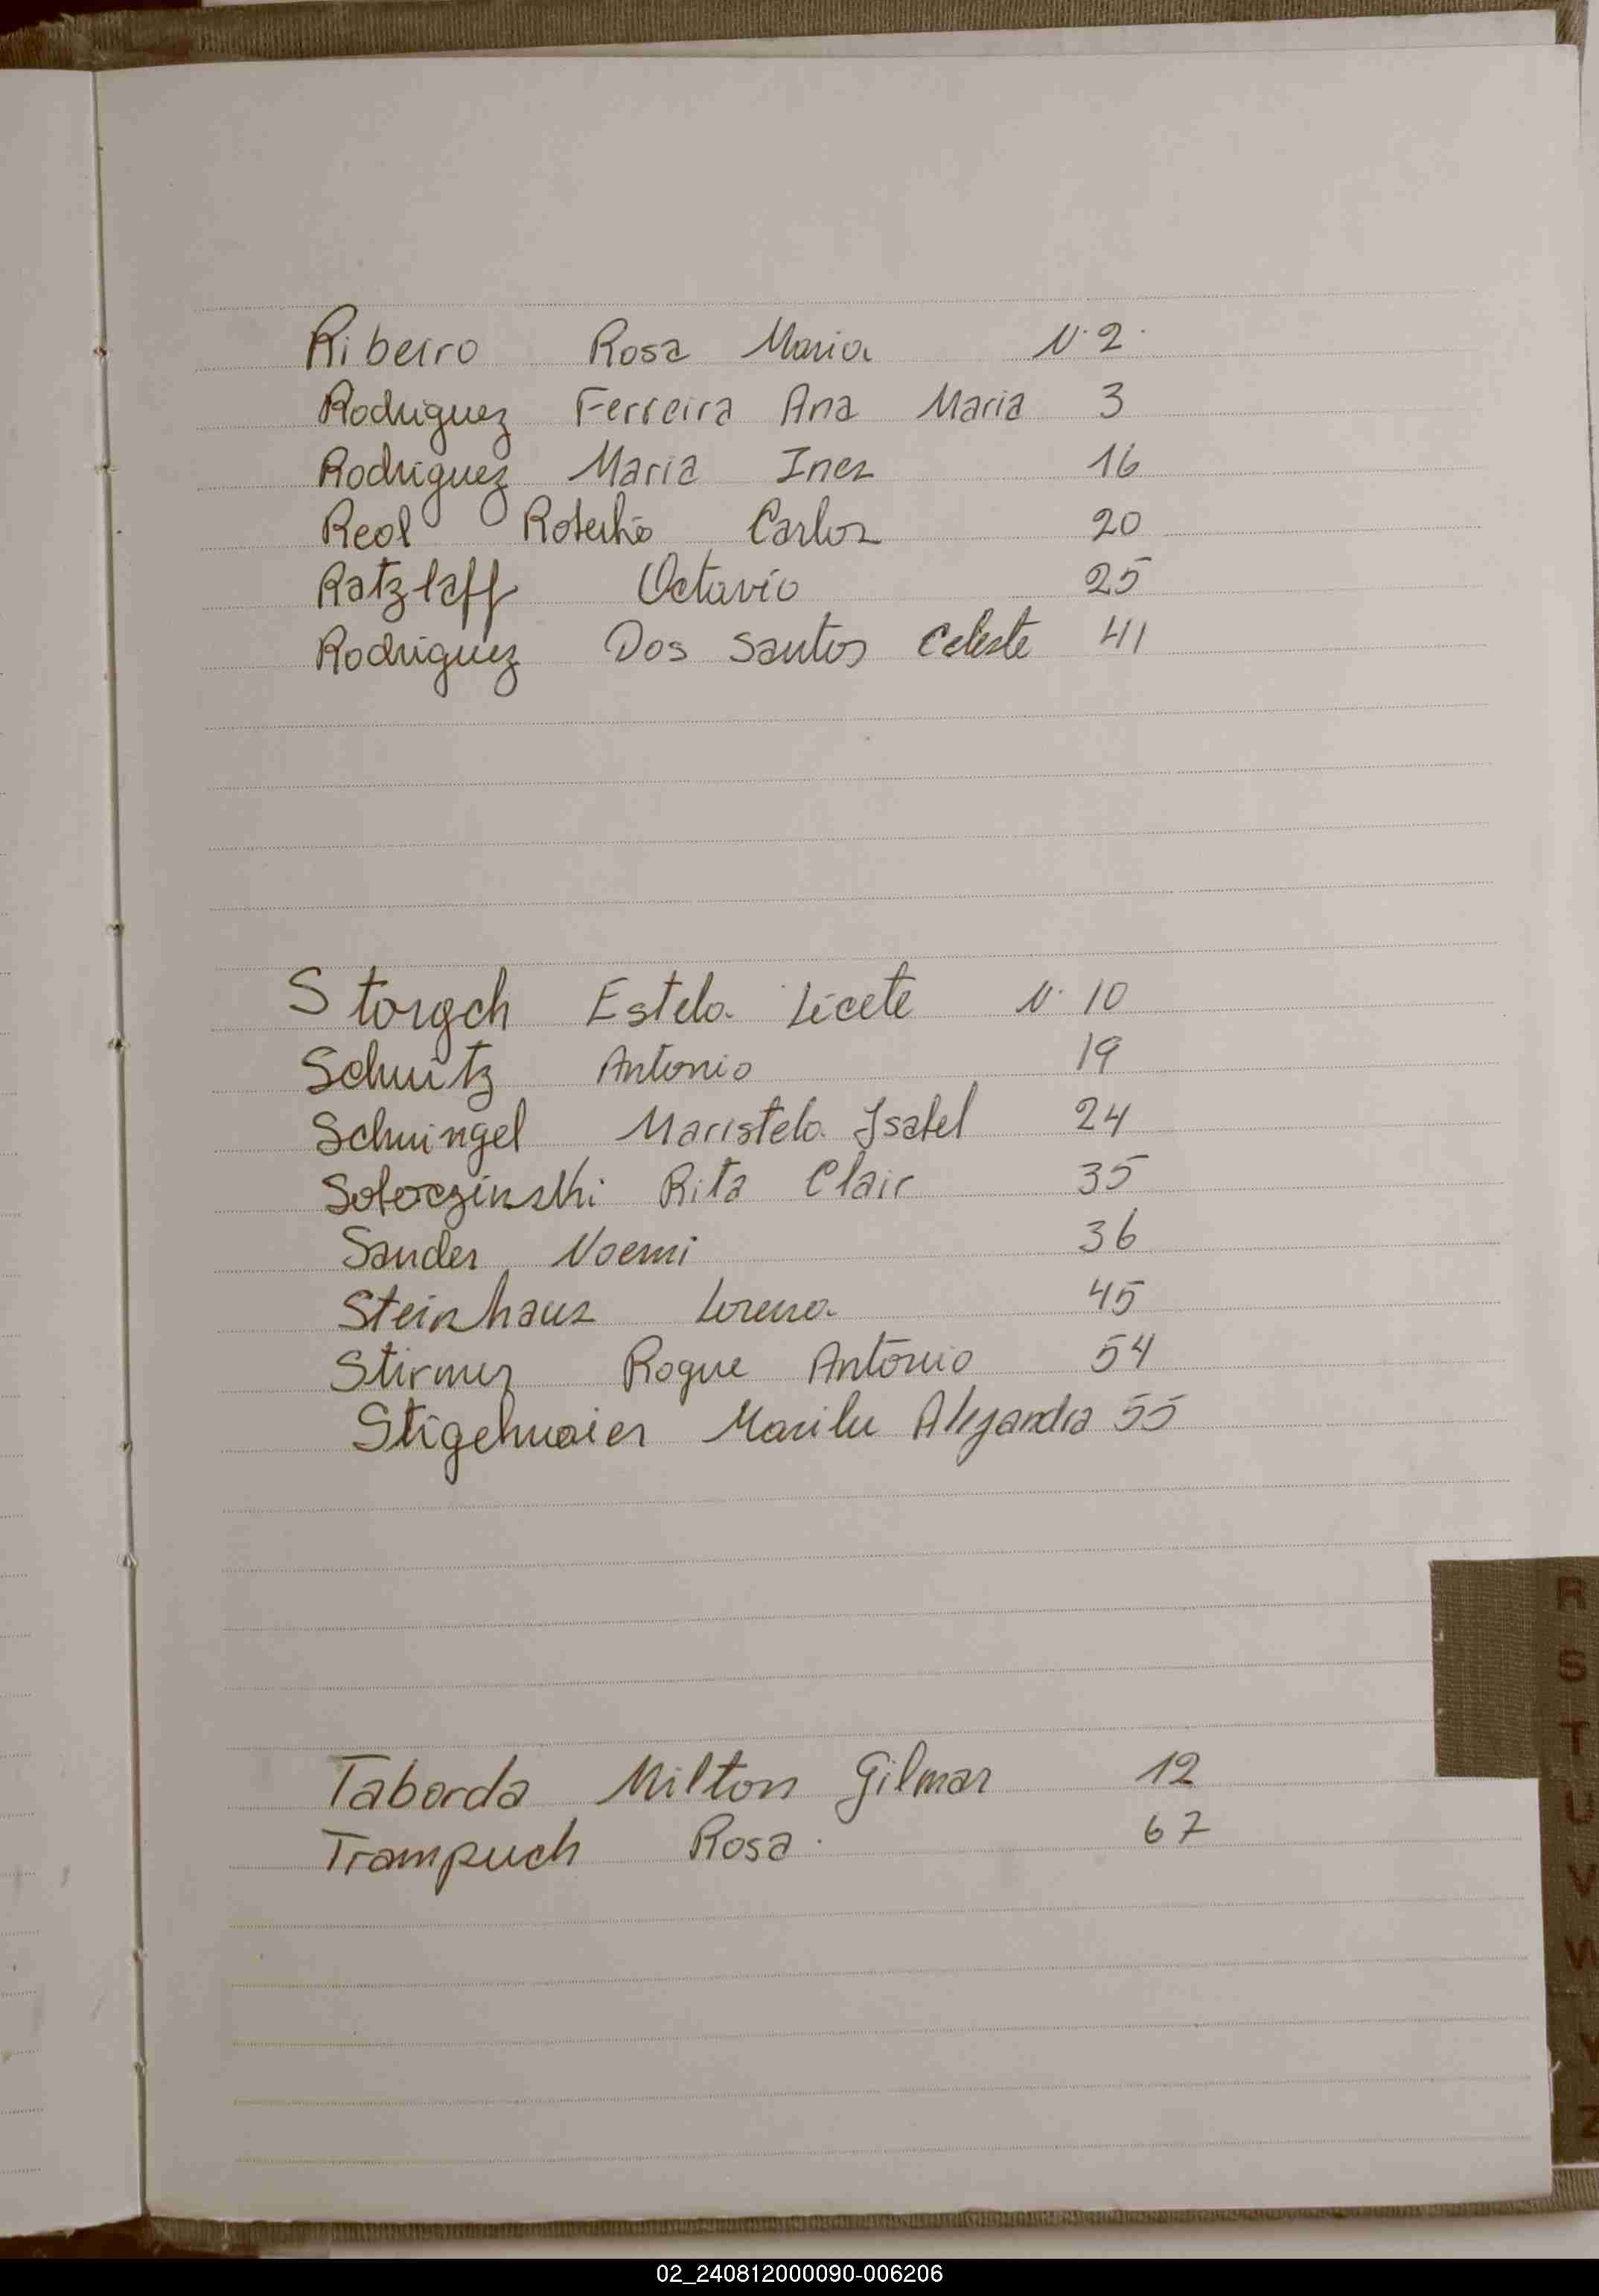 Ribeiro Rosa Maria N. 2.
Rodriguez Ferreira Ana Maria 3
Rodriguez Maria Ines 16
Reol Carlos 20
Ratzlaff Octavio 25
Rodriguez Dos Santos Celeste 41
Storgch Estela Licete N. 10
Schuitz Antonio 19
Schuingel Maristela Isabel 24
Rita Clair 35
Sander Noemi 36
Steinhaus Lorena 45
Stirmer Roque Antonio 54
Stigelmaier Marilu Alejandra 55
Taborda Milton Gilmar 12
Trampuch Rosa. 67
R
S
T
U
V
W
Y
Z
02_240812000090-006206